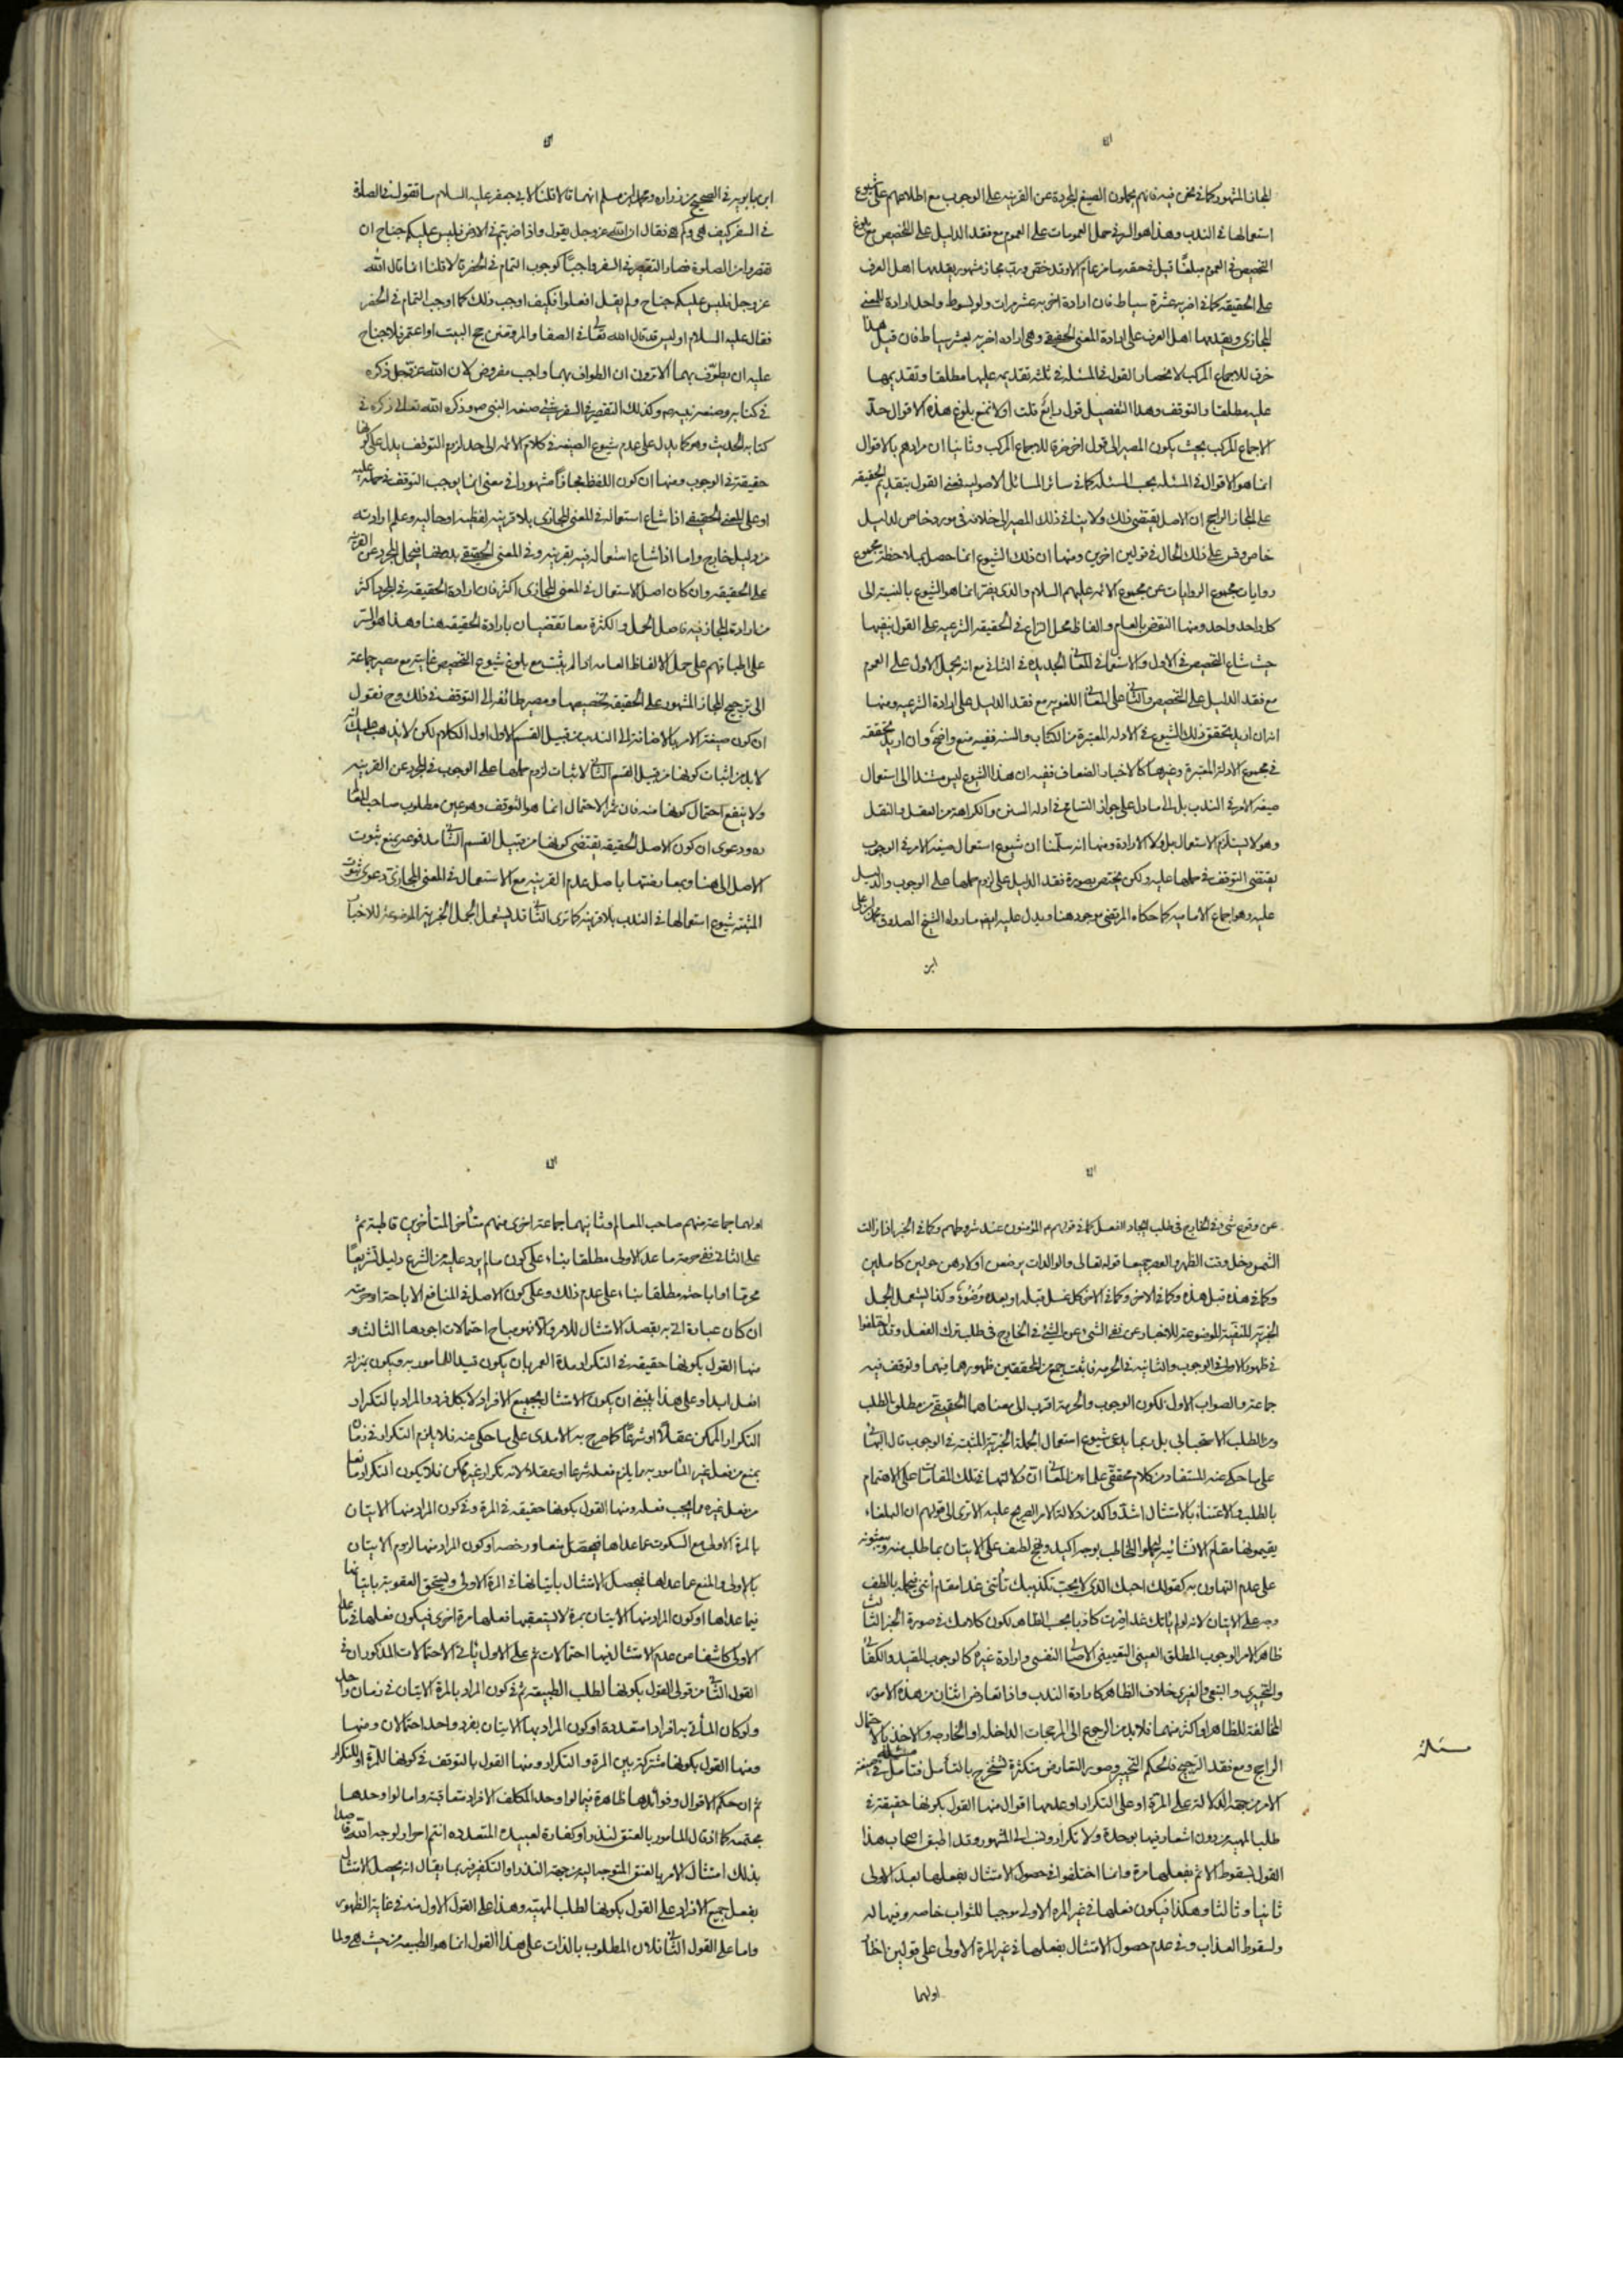 المجاز المشهور كما في نحن فيه فانهم يحملون الصيغ المجردة عن القرينه على الوجوب مع اطلاعهم على شيوع
استعمالها في الندب وهذا هو السر في حمل العمومات على العموم مع فقد الدليل على التخصيص مع بلوغ
التخصيص في العموم مبلغًا قيل في حقه ما من عام الا وقد خص ورب مجاز مشهور يقدمها اهل العرف
على الحقيقه كما في اضربه عشرة سياط فان ارادة اضربه عشر مرات ولو بسوط واحد ارادة للمعنى
المجازي ويقدمها اهل العرف على ارادة المعنى الحقيقي وهي اراده اضربه بعشر سياط فان قيل هذا
خرق للاجماع المركب لانحصار القول في المسئله في ثلثه تقديمه عليها مطلقا وتقديمها
عليه مطلقا والتوقف وهذا التفصيل قول رابع قلت اولا نمنع بلوغ هذه الاقوال حدّ
الاجماع المركب بحيث يكون المصير الى قول اخر خرقا للاجماع المركب وثانيا ان مرادهم بالاقوال
انما هو الاقوال في المسئله بحسب المسئله كما في سائر المسائل الاصوليه فمعنى القول بتقديم الحقيقه
على المجاز الراجح ان الاصل يقتضي ذلك ولا ينافي ذلك المصير الى خلافه في مورد خاص لدليل
خاص وقس على ذلك الحال في قولين اخرين ومنها ان ذلك الشيوع انما حصل بملاحظة مجموع
روايات مجموع الروايات عن مجموع الائمه عليهم السلام والذي يضر انما هو الشيوع بالنسبة الى
كل واحد واحد ومنها النقض بالعام والفاظ محل النزاع في الحقيقه الشرعيه على القول بنفيها
حيث شاع التخصيص في الاول والاستعمال في المعاني الجديده في الثاني مع انه يحمل الاول على العموم
مع فقد الدليل على التخصيص والثاني على المعاني اللغويه مع فقد الدليل على ارادة الشرعيه ومنها
انه ان اريد تحقق ذلك الشيوع في الادله المعتبرة من الكتاب والسنه ففيه منع واضح وان اريد تحققه
في مجموع الادلة المعتبرة وغيرها كالاخبار الضعاف ففيه ان هذا الشيوع ليس مستندا الى استعمال
صيغه الامر في الندب بل الى ما دل على جواز التسامح في ادله السنن والكراهة من العقل والنقل
وهو لا يستلزم الاستعمال بل ولا الارادة ومنها انه سلّمنا ان شيوع استعمال صيغه الامر في الوجوب
يقتضي التوقف في حملها عليه ولكن يختص بصورة فقد الدليل على لزوم حملها على الوجوب والدليل
عليه وهو اجماع الاماميه كما حكاه المرتضى موجود هنا ويدل عليه ايضا ما رواه الشيخ الصدوق محمد بن علي
ابن
ابن بابويه في الصحيح عن زراره ومحمد بن مسلم انهما قالا قلنا لابي جعفر عليه السلام ما تقول في الصلوة
في السفر كيف هي وكم هي فقال ان الله عز وجل يقول واذا ضربتم في الارض فليس عليكم جناح ان
تقصروا من الصلوة فصار التقصير في السفر واجبًا كوجوب التمام في الحضر قالا قلنا انما قال الله
عز وجل فليس عليكم جناح ولم يقل افعلوا فكيف اوجب ذلك كما اوجب التمام في الحضر
فقال عليه السلام اوليس قد قال الله تعالى في الصفا والمروة فمن حج البيت او اعتمر فلا جناح
عليه ان يطوّف بهما الا ترون ان الطواف بهما واجب مفروض لان الله عز وجل ذكره
في كتابه وصنعه نبيه ص وكذلك التقصير في السفر شئ صنعه النبي ص وذكره الله تعالى ذكره في
كتابه الحديث وهو كما يدل على عدم شيوع الصيغه في كلام الائمه الى حد لزوم التوقف يدل على كونها
حقيقة في الوجوب ومنها ان كون اللفظ مجازًا مشهورا في معنى انما يوجب التوقف في حمله عليه
او على المعنى الحقيقي اذا شاع استعماله في المعنى المجازي بلا قرينه لفظيه او حاليه وعلم ارادته
من دليل خارج واما اذا شاع استعماله فيه بقرينه وفي المعنى الحقيقي بدونها فيحمل المجرد عن القرينه
على الحقيقه وان كان اصل الاستعمال في المعنى المجازي اكثر فان ارادة الحقيقه في المجرد اكثر
من ارادة المجاز فيه فاصل الحمل والكثرة معا تقضيان بارادة الحقيقه هنا وهذا هو السر
على اطباقهم على حمل الالفاظ العامه اذا لم يثبت مع بلوغ شيوع التخصيص غايته مع مصير جماعة
الى ترجيح المجاز المشهور على الحقيقه بتخصيصها ومصير طائفه الى التوقف في ذلك وح نقول
ان كون صيغة الامر بالاضافة الى الندب من قبيل القسم الاول اول الكلام لكن لا يذهب عليك انه
لا بد من اثبات كونها من قبيل القسم الثاني لاثبات لزوم حملها على الوجوب في المجرد عن القرينه
ولا ينفع احتمال كونها منه فان ثمرة الاحتمال انما هو التوقف وهو عين مطلوب صاحب المعالم
ره ودعوى ان كون الاصل الحقيقه يقتضي كونها من قبيل القسم الثاني مدفوعه بمنع ثبوت
الاصل الى هنا وبمعارضتها باصل عدم القرينه مع الاستعمال في المعنى المجازي ودعوى ثبوت
المثبته شيوع استعمالها في الندب بلا قرينه كما ترى الثاني قد يستعمل الجمل الخبرية الموضوعة للاخبار
عن وقوع شيء في الخارج في طلب ايجاد الفعل كما في قولهم م المؤمنون عند شروطهم وكما في الخبر اذا زالت
الشمس دخل وقت الظهر والعصر جميعا قوله تعالى والوالدات يرضعن اولادهن حولين كاملين
وكما في هذه قبل هذه وكما في الاخر وكما في الاخر كل غسل قبله او بعده وضوء وكذا يستعمل الجمل
الخبريّه المنفيّة الموضوعة للاخبار عن نفي الشيء عن الشئ في الخارج في طلب ترك الفعل وقد اختلفوا
في ظهور الاولى في الوجوب والثانيه في الحرمه فاثبت جمع من المحققين ظهورهما فيهما وتوقف فيه
جماعة والصواب الاول لكون الوجوب والحرمة اقرب الى معناهما الحقيقي من مطلق الطلب
ومن الطلب الاستحبابي بل ربما يدعى شيوع استعمال الجملة الخبرية المثبته في الوجوب قال البهائي
على ما حكى عنه المستفاد من كلام محققي علماء من المعاني ان دلالتها في تلك المقامات على الاهتمام
بالطلب والاعتناء بالامتثال اشدّ واكد من دلالة الامر الصريح عليه الا ترى الى قولهم ان البلغاء
يقيمونها مقام الانشائيه ليحملوا المخاطب بوجه اكيد ونهج لطيف على الاتيان بما طلب منه ويبعثونه
على عدم التهاون به كقولك لصاحبك الذي لا يحب تكذيبك تأتيني غدا مقام أتني فتحمله بالطف
وجه على الاتيان لانه لو لم ياتك غدا صرت كاذبا بحسب الظاهر لكون كلامك في صورة الخبر الثالث
ظاهر الامر الوجوب المطلق العيني التعييني الاصلي النفسي وارادة غيره كالوجوب المقيد والكفائي
والتخييري والتبعي والغيري خلاف الظاهر كارادة الندب واذا تعارض اثنان من هذه الامور
المخالفة للظاهر او اكثر منهما فلا بد من الرجوع الى المرجحات الداخله او الخارجه والاخذ بالاحتمال
الراجح ومع فقد الترجيح فالحكم التخيير وصور التعارض متكثرة تستخرج بالتأمل فتأمل مسئلة في صيغة
الامر من جهة الدلالة على المرة او على التكرار او عدمها اقوال منها القول بكونها حقيقة في
طلب المهية من دون اشعار فيها بوحدة ولا تكرار ونسب الى المشهور وقد اطبق اصحاب هذا
القول بسقوط الاثم بفعلها مرة وانما اختلفوا في حصول الامتثال بفعلها بعد الاولى
ثانيا وثالثا وهكذا فيكون فعلها في غير المرة الاولى موجبا للثواب خاصه وفيها له
ولسقوط العذاب وفي عدم حصول الامتثال بفعلها في غير المرة الاولى على قولين اختار
اولهما
مسئلة
اولهما جماعة منهم صاحب المعالم وثانيهما جماعة اخرى منهم متأخر المتأخرين قاطبة ثم
على الثاني ففي حرمة ما عدا الاولى مطلقا بناء على كون ما لم يرد عليه من الشرع دليل تشريعًا
محرما او اباحته مطلقا بناء على عدم ذلك وعلى كون الاصل في المنافع الاباحة او حرمته
ان كان عبادة اتى به بقصد الامتثال للامر والا فهو مباح احتمالات اجودها الثالث و
منها القول بكونها حقيقه في التكرار مدة العمر بان يكون قيدا للمامور به ويكون بمنزلة
افعل ابدا وعلى هذا ينبغي ان يكون الامتثال بجميع الافراد لا بكل فرد والمراد بالتكرار
التكرار الممكن عقلًا او شرعًا كما صرح به الامدي على ما حكي عنه فلا يلزم التكرار في زمان
يمنع من فعل غير المأمور به مما يلزم فعله شرعا او عقلا لانه تكرار غير ممكن فلا يكون التكرار مانعا
من فعل غيره مما يجب فعله ومنها القول بكونها حقيقه في المرة وفي كون المراد منها الاتيان
بالمرة الاولى مع السكوت عما عداها فيحصل منعا ورخصه او كون المراد منها لزوم الاتيان
بالاولى والمنع عما عداها فيحصل الامتثال باتيانها في المرة الاولى ويستحق العقوبة باتيانها
فيما عداها او كون المراد منها الاتيان بمرة لا يستعقبها فعلها مرة اخرى فيكون فعلها في ما عدا
الاولى كاشفا عن عدم الامتثال فيها احتمالات ثم على الاول يأتي الاحتمالات المذكوران في
القول الثاني من قولي القول بكونها لطلب الطبيعة ثم في كون المراد بالمرة الاتيان في زمان واحد
ولو كان المأتي به افراد متعددة او كون المراد بها الاتيان بفرد واحد احتمالان ومنها
ومنها القول بكونها مشتركة بين المرة والتكرار ومنها القول بالتوقف في كونها للمرة او للتكرار
ثم ان حكم الاقوال وفوائدها ظاهرة فيما لو اوجد المكلف الافراد متعاقبة واما لو اوجدها
مجتمعة كما اذا قال المامور بالعتق لنذر او كفارة لعبيده المتعدده انتم احرار لوجه الله قاصدا
بذلك امتثال الامر بالعتق المتوجه اليه من جهة النذر او التكفير فربما يقال انه يحصل الامتثال
بفعل جميع الافراد على القول بكونها لطلب المهيّة وهذا على القول الاول منه في غاية الظهور
واما على القول الثاني فلان المطلوب بالذات على هذا القول انما هو الطبيعه من حيث هي ولما